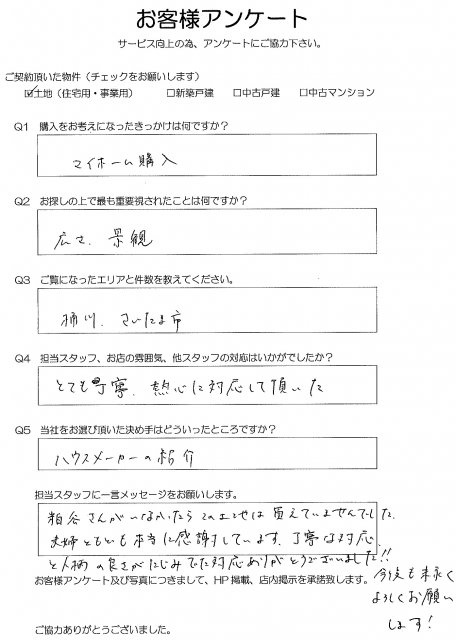 お客様アンケート
サービス向上の為、アンケートにご協力下さい。
ご契約頂いた物件（チェックをお願いします）
☑土地（住宅用・事業用） □新築戸建 □中古戸建 □中古マンション
Q1 購入をお考えになったきっかけは何ですか？
マイホーム購入
Q2 お探しの上で最も重要視されたことは何ですか？
広さ、景観
Q3 ご覧になったエリアと件数を教えてください。
桶川、さいたま市
Q4 担当スタッフ、お店の雰囲気、他スタッフの対応はいかがでしたか？
とても丁寧、熱心に対応して頂いた
Q5 当社をお選び頂いた決め手はどういったところですか？
ハウスメーカーの紹介
担当スタッフに一言メッセージをお願いします。
粕谷さんがいなかったらこの土地は買えていませんでした。
夫婦ともども本当に感謝しています。丁寧な対応
と人柄の良さがにじみでた対応ありがとうございました!!
今後も末永く
よろしくお願い
します!
お客様アンケート及び写真につきまして、HP掲載、店内掲示を承諾致します。
ご協力ありがとうございました。